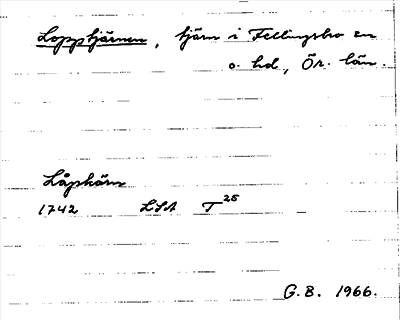 Lopptjärnen, tjärn i Fellingsbro sn
o. hd, Ör. län.
Låpkärn
1742 LSA T25
G.B. 1966.